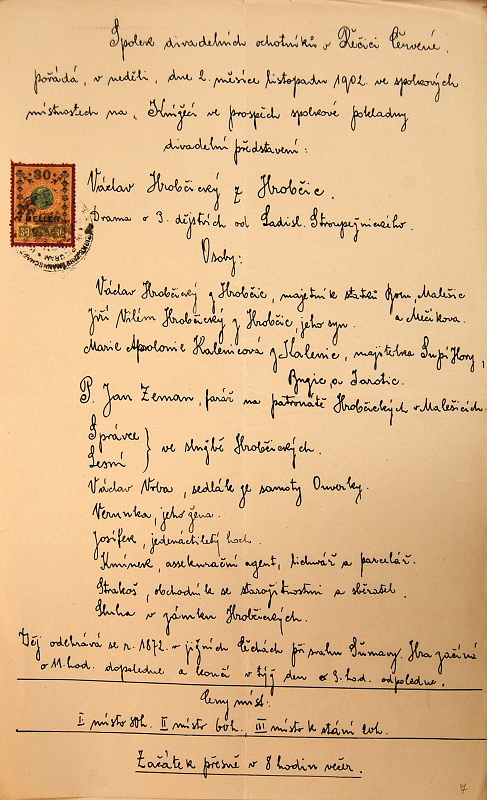 Spolek divadelních ochotníků v Řečici Červené.
pořádá, v neděli, dne 2. měsíce listopadu 1902 ve spolkových
místnostech na, Knížecí ve prospěch spolkové pokladny
divadelní představení:
30
HELLER
Václav Hrobčický z Hrobčic.
Drama o 3. dějstvích od Ladisl. Stroupežnického.
Osoby:
Václav Hrobčický z Hrobčic, majetník statků Malešic
a Mečíkova.
Jiří Vilém Hrobčický z Hrobčic, jeho syn.
Marie Apolonie Kalenicová z Kalenic, majitelka Supí Hory,
a Jarotic.
P. Jan Zeman, farář na patronátě Hrobčických v Malešicích.
Správce
Lesní } ve službě Hrobčických.
Václav Vrba, sedlák ze samoty Ouverky.
Verunka, jeho žena.
Josífek, jedenáctiletý hoch.
Kmínek, assekurační agent, lichvář a parcelář.
Strakoš, obchodník se starožitnostmi a sběratel.
Sluha v zámku Hrobčických.
Děj odehrává se r. 1872. v jižních Čechách při svahu Šumavy. Hra začíná
o 11. hod. dopoledne a končí v týž den o 3. hod. odpoledne.
Ceny míst:
I místo 80h. II místo 60h. III místo k stání 20h.
Začátek přesně v 8 hodin večer.
7